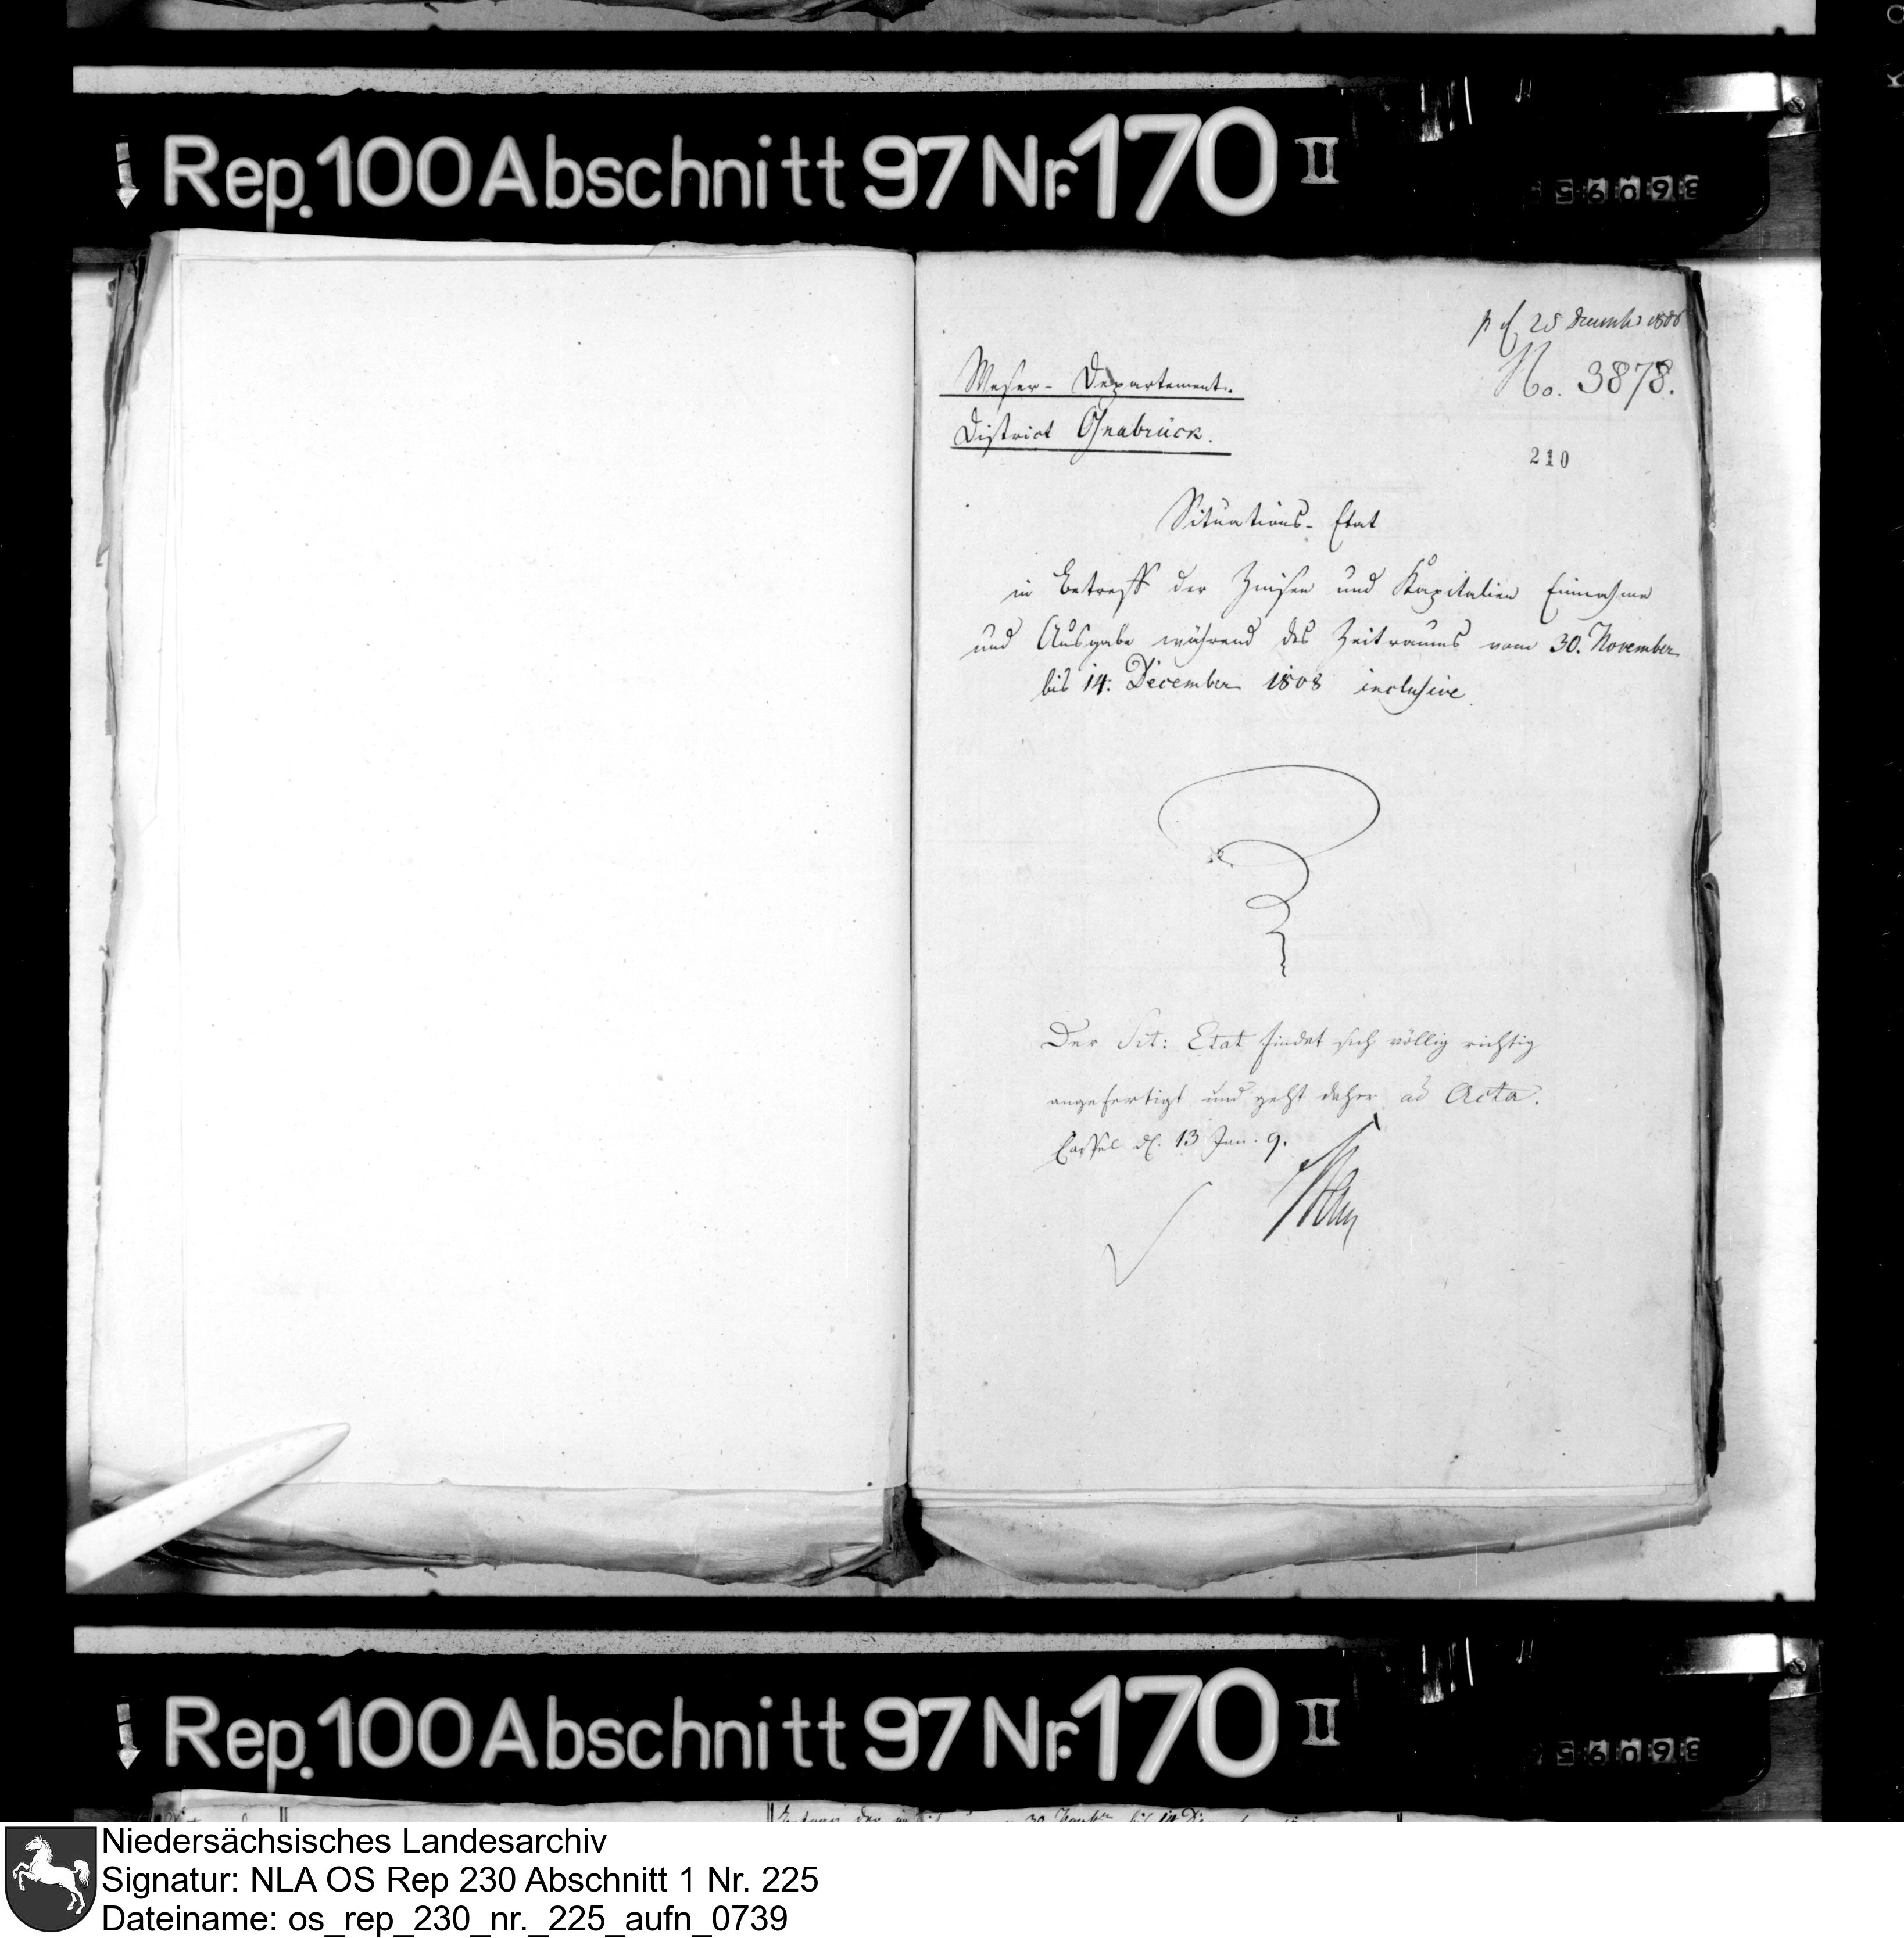 Rep. 100 Abschnitt 97 Nr. 170 II
36095
25 Decembr 1808
No. 3878.
Weser-Departement.
District Osnabrück.
210
Situations-Etat
in Betreff der Zinsen und Kapitalien Einnahme
und Ausgabe während des Zeitraums vom 30. November
bis 14. December 1808 inclusive.
Der Sit: Etat findet sich völlig richtig
angefertigt und geht daher ad Acta.
Cassel d. 13 Jan. 9.
Rep. 100 Abschnitt 97 Nr. 170 II
36095
Niedersächsisches Landesarchiv
Signatur: NLA OS Rep 230 Abschnitt 1 Nr. 225
Dateiname: os_rep_230_nr._225_aufn_0739